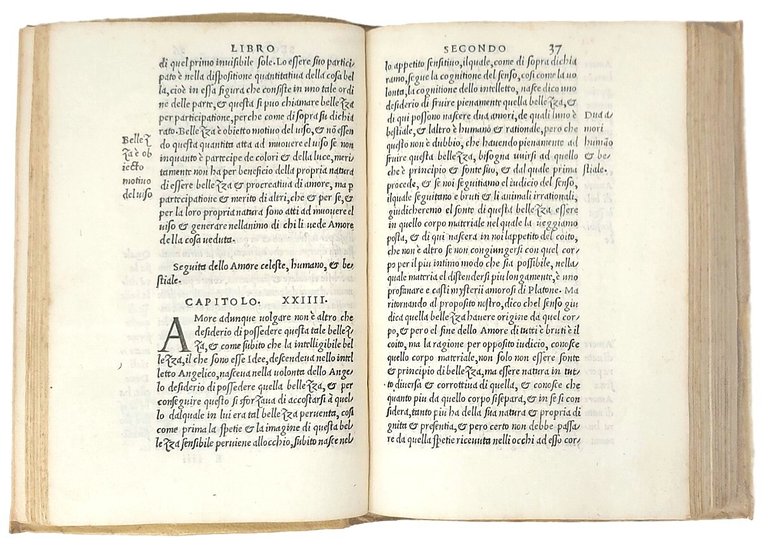 LIBRO
di quel primo inuisibile sole. Lo essere suo partici
pato è nella dispositione quantitatiua della cosa bel
la, cioè in essa figura che consiste in uno tale ordi
ne delle parte, & questa si puo chiamare bellezza
per participatione, perche come di sopra su dichia
rato. Bellezza è obietto motiuo del uiso, & nõ essen
do questa quantita atta ad muouere el uiso se non
inquanto è partecipe de colori & della luce, meri/
tamente non ha per beneficio della propria natura
di essere bellezza & procreatiua di amore, ma p
partecipatione & merito di altri, che & per se, &
per la loro propria natura sono atti ad muouere el
uiso & generare nellanimo di chi li uede Amore
della cosa veduta.
Bellez
za è ob
iecto
motiuo
del uiso
Seguita dello Amore celeste, humano, & be/
stiale.
CAPITOLO. XXIIII.
AMore adunque uolgare non è altro che
desiderio di possedere questa tale bellez/
za, & come subito che la intelligibile bel
lezza, il che sono esse Idee, descendeua nello intel
letto Angelico, nasceua nella uolonta dello Ange
lo desiderio di possedere quella bellezza, & per
conseguire questo si sforzaua di accostarsi a quel
lo dalquale in lui era tal bellezza peruenta, cosi
come prima la spetie & la imagine di questa bel/
lezza sensibile peruiene allocchio, subito nasce nel
SECONDO 37
lo appetito sensitiuo, ilquale, come di sopra dichia
ramo, segue la cognitione del senso, cosi come la uo
lonta, la cognitione dello intelletto, nasce dico uno
desiderio di fruire pienamente quella bellezza, &
di qui possono nascere dua amori, de quali luno è
bestiale, & laltro è humano & rationale, pero che
questo non è dubbio, che hauendo pienamente ad
fruire questa bellezza, bisogna unirsi ad quello
che è principio & fonte suo, & dal quale prima
procede, & se noi seguitiamo el iudicio del senso,
ilquale seguitano e bruti & li animali irrationali,
giudicheremo el fonte di questa bellezza essere
in quello corpo materiale nel quale la ueggiamo
posta, & di qui nascera in noi lappetito del coito,
che non è altro se non congiungersi con quel cor
po per il piu intimo modo che sia possibile, nella
quale materia el distendersi piu longamente, è uno
profanare e casti mysterii amorosi di Platone. Ma
ritornando al proposito nostro, dico chel senso giu
dica quella bellezza hauere origine da quel cor/
po, & pero el fine dello Amore di tutti è bruti è il
coito, ma la ragione per opposito iudicio, conosce
quello corpo materiale, non solo non essere fonte
& principio di bellezza, ma essere natura in tut/
to diuersa & corrottiua di quella, & conosce che
quanto piu da quello corpo si separa, & in se si con
sidera, tanto piu ha della sua natura & propria di
gnita & presentia, & pero certo non debbe passa/
re da quella spetie riceuuta nelli occhi ad esso cor/
Dua a/
mori
humão
& be/
stiale.